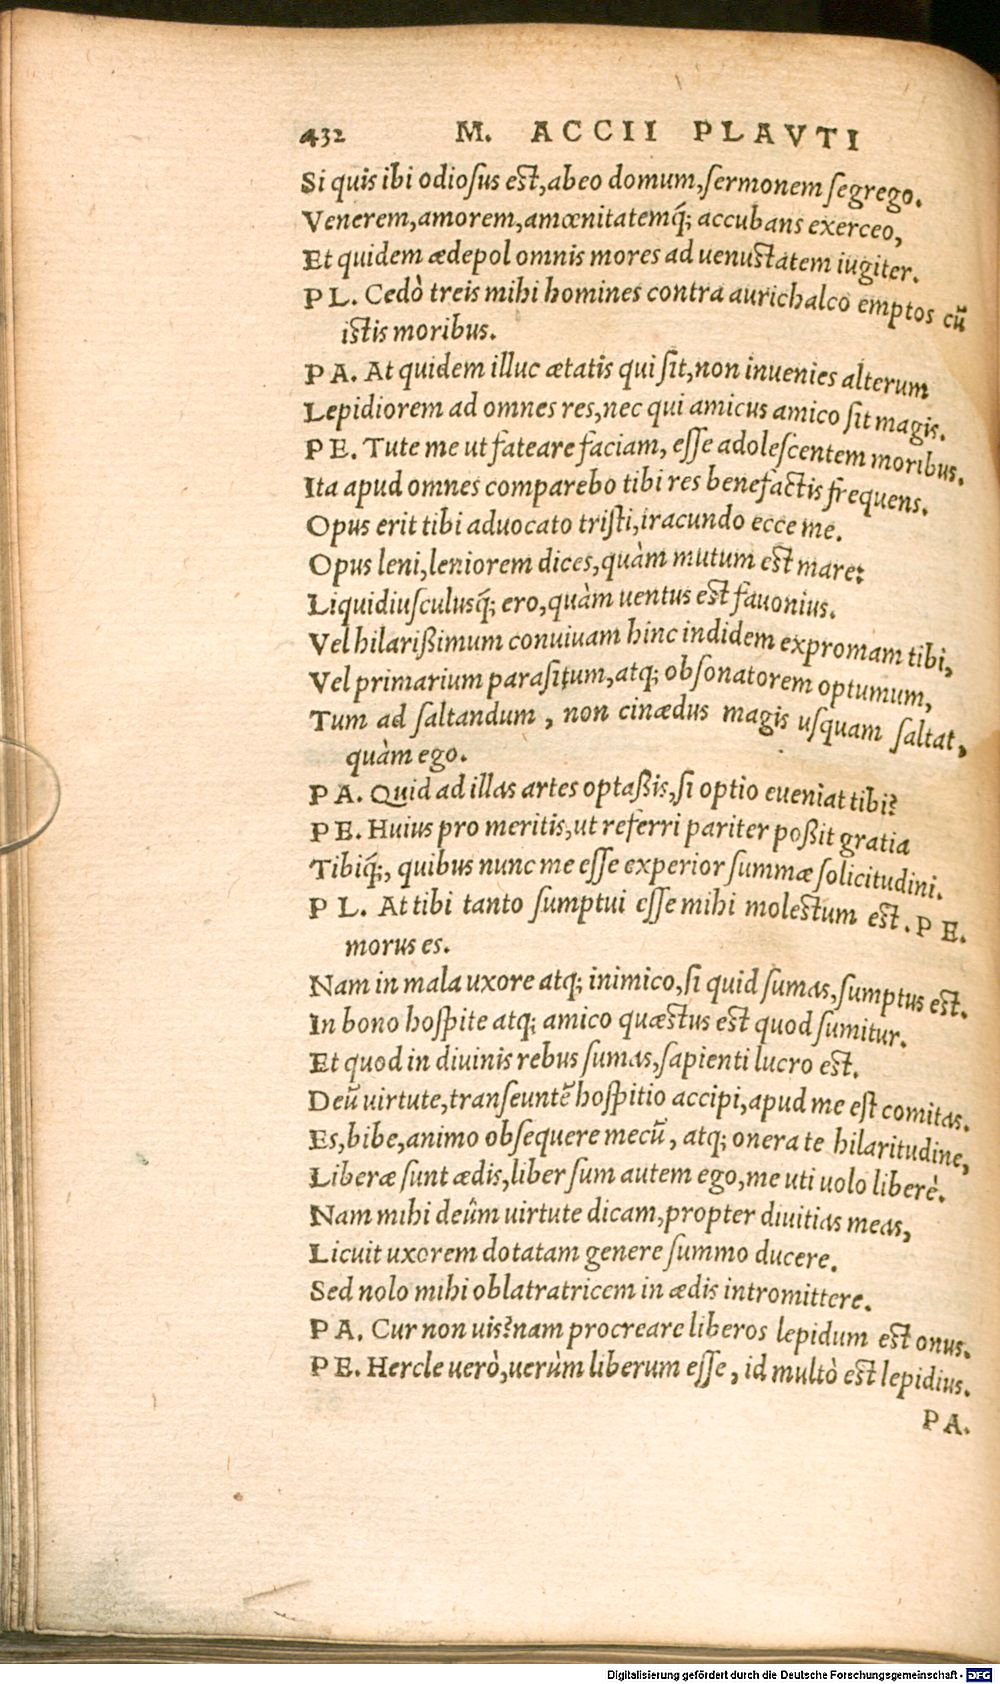 432 M. ACCII PLAVTI
Si quis ibi odiosus est,abeo domum,sermonem segrego.
Venerem,amorem,amœnitatemq́; accubans exerceo,
Et quidem ædepol omnis mores ad uenustatem iugiter.
PL. Cedò treis mihi homines contra aurichalco emptos cū
istis moribus.
PA. At quidem illuc ætatis qui sit,non inuenies alterum
Lepidiorem ad omnes res,nec qui amicus amico sit magis.
PE. Tute me ut fateare faciam, esse adolescentem moribus.
Ita apud omnes comparebo tibi res benefactis frequens.
Opus erit tibi aduocato tristi,iracundo ecce me.
Opus leni,leniorem dices,quàm mutum est mare:
Liquidiusculusq́; ero,quàm uentus est fauonius.
Vel hilarißimum conuiuam hinc indidem expromam tibi,
Vel primarium parasitum,atq; obsonatorem optumum,
Tum ad saltandum, non cinædus magis usquam saltat,
quàm ego.
PA. Quid ad illas artes optaßis,si optio eueniat tibi?
PE. Huius pro meritis,ut referri pariter poßit gratia
Tibiq́;, quibus nunc me esse experior summæ solicitudini.
PL. At tibi tanto sumptui esse mihi molestum est. PE.
morus es.
Nam in mala uxore atq; inimico,si quid sumas,sumptus est.
In bono hospite atq; amico quæstus est quod sumitur.
Et quod in diuinis rebus sumas,sapienti lucro est.
Deū uirtute,transeuntē hospitio accipi,apud me est comitas.
Es,bibe,animo obsequere mecū, atq; onera te hilaritudine,
Liberæ sunt ædis,liber sum autem ego,me uti uolo liberè.
Nam mihi deûm uirtute dicam,propter diuitias meas,
Licuit uxorem dotatam genere summo ducere.
Sed nolo mihi oblatratricem in ædis intromittere.
PA. Cur non uis?nam procreare liberos lepidum est onus.
PE. Hercle uerò,uerùm liberum esse, id multò est lepidius.
PA.
Digitalisierung gefördert durch die Deutsche Forschungsgemeinschaft - DFG